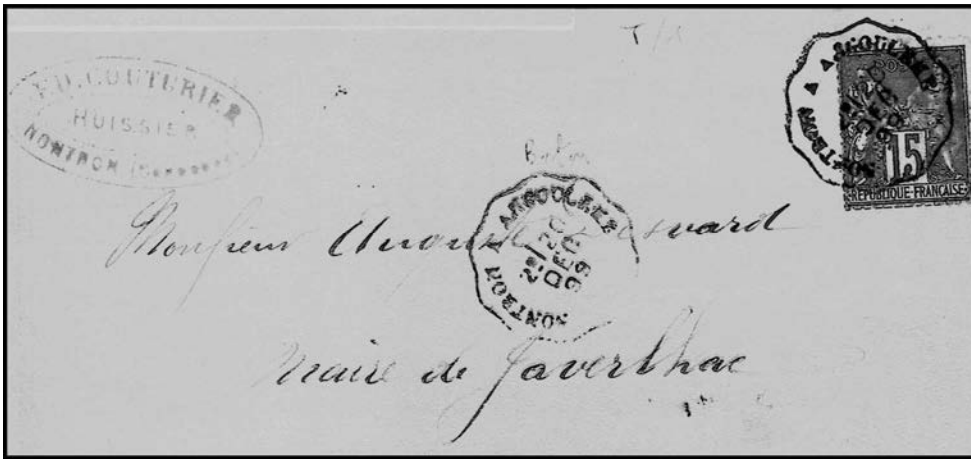 T/1
ED. COUTURIER
HUISSIER
NONTRON
NONTRON A ANGOULEME
20
DEC
99
15
REPUBLIQUE FRANCAISE
NONTRON A ANGOULEME
2º/20
DEC
99
Monsieur Auguste
Maire de Javerlhac